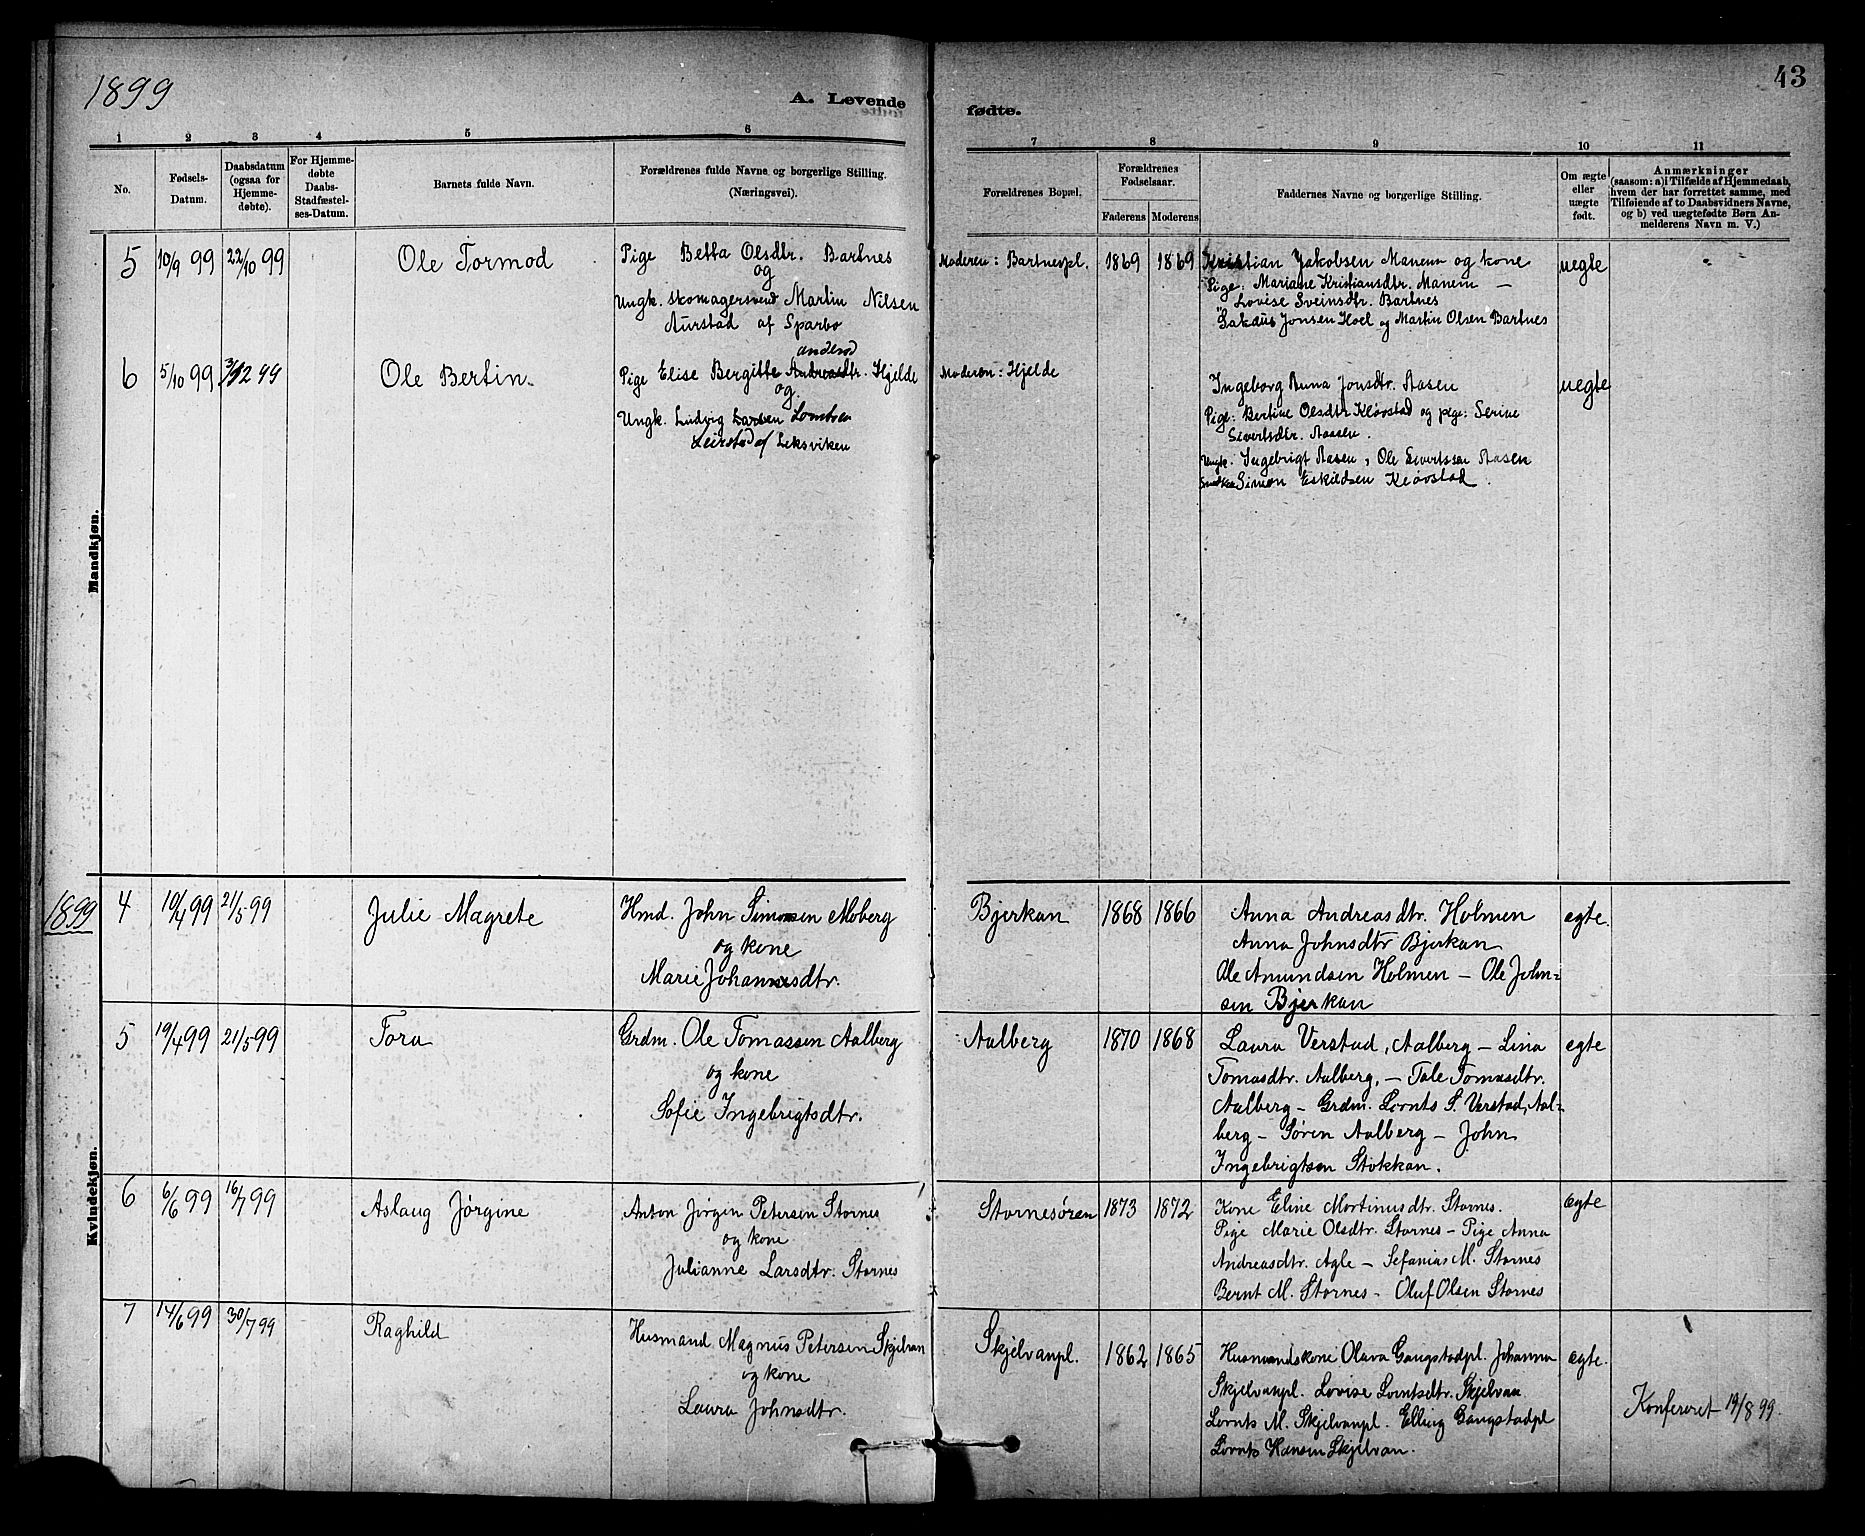 1899
A. Levende
fødte.
43
1 2 3 4 5 6 7 8 9 10 11
No.
Fødsels-Datum.
Daabsdatum (ogsaa for Hjemme-døbte).
For Hjemme-døbte Daabs-Stadfæstel-ses-Datum.
Barnets fulde Navn.
Forældrenes fulde Navne og borgerlige Stilling.
(Næringsvei).
Forældrenes Bopæl.
Forældrenes Fødselsaar.
Faderens Moderens
Faddernes Navne og borgerlige Stilling.
Om ægte eller uægte født.
Anmærkninger
(saasom: a) i Tilfælde af Hjemmedaab,
hvem der har forrettet samme, med
Tilføiende af to Daabsvidners Navne,
og b) ved uægtefødte Børn An-
melderens Navn m. V.)
Mandkjøn.
5 10/9 99 22/10 99 Ole Tormod
Pige Betta Olsdtr. Bartnes
og
Ungk. skomagersvend Martin Nilsen
Aurstad af Sparbo
Moderen: Bartnespl. 1869 1869
Kristian Jakobsen Manem og kone
Pige: Mariane Kristiansdtr. Manem —
" Lovise Sveinsdtr. Bartnes
Sakaus Jonsen Hoel og Martin Olsen Bartnes
uegte
6 5/10 99 3/12 99 Ole Bertin.
anderod
Pige Elise Bergitte Andreasdtr. Hjelde
og
Ungk. Ludvig Larsen
Leirstad af Leksviken
Moderen: Hjelde
Ingeborg Anna Jonsdtr. Aasen
Pige: Bertine Olsdtr Kløvstad og pige: Serine
Sivertsdtr. Aasen.
Ungk. Ingebrigt Aasen, Ole Sivertsen Aasen
Simon Eskildsen Kløvstad.
uegte
1899
Kvindekjøn.
4 19/4 99 21/5 99 Julie Magrete
Hmd. John Simonsen Moberg
og kone
Marie Johannesdtr.
Bjerkan 1868 1866
Anna Andreasdtr. Holmen
Anna Johnsdtr Bjerkan
Ole Amundsen Holmen — Ole John=
sen Bjerkan
egte.
5 19/4 99 21/5 99 Tora
Grdm. Ole Tomassen Aalberg
og kone
Sofie Ingebrigtsdtr.
Aalberg 1870 1868
Laura Verstad, Aalberg — Lina
Tomasdtr. Aalberg, — Tale Tomasdtr.
Aalberg — Grdm. Lornts S. Verstad, Aal=
berg — Søren Aalberg — John
Ingebrigtsen Stokkan.
egte
6 6/6 99 16/7 99 Aslaug Jørgine
Anton Jørgen Petersen Stornes
og kone
Julianne Larsdtr. Stornes
Stornesøren 1873 1872
Kone Eline Mortinusdtr. Stornes.
Pige Marie Olsdtr. Stornes — Pige Anna
Andreasdtr. Agle — Sefanias M. Stornes
Bernt M. Stornes — Oluf Olsen Stornes
egte
7 14/6 99 30/7 99 Raghild
Husmand Magnus Petersen Skjelvan
og kone
Laura Johnsdtr.
Skjelvanpl. 1862 1865
Husmandskone Olava Gangstadpl. Johanna
Skjelvanpl. Lovise Lorntsdtr. Skjelvan
Lornts M. Skjelvanpl. Elling Gangstadpl
Lornts Hansen Skjelvan.
egte.
Konfereret 19/8 99.